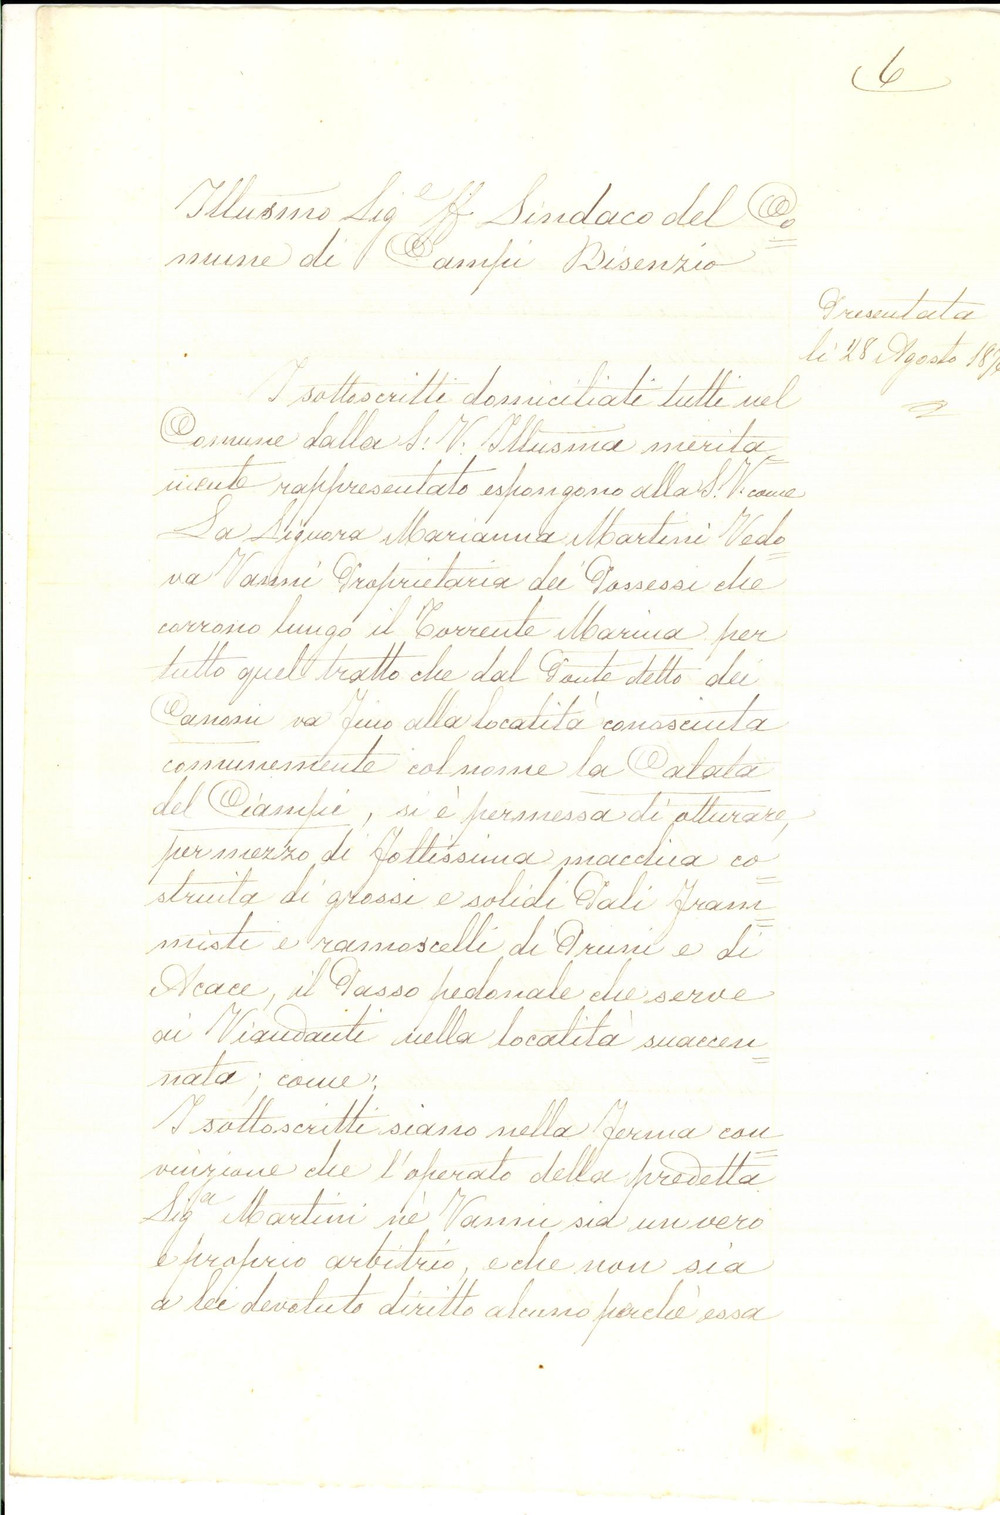 6
Illusmo Sige ff Sindaco del Co=
mune di Campi Bisenzio
Presentata
li 28 Agosto
I sottoscritti domiciliati tutti nel
Comune dalla S. V. Illusma merita=
mente rappresentato espongono alla S. V. come
La Signora Marianna Martini Vedo=
va Vanni Proprietaria dei Possessi che
corrono lungo il Torrente Marina per
tutto quel tratto che dal Ponte detto dei
Canoni va fino alla località conosciuta
comunemente col nome la Calata
del Ciampi, si è permessa di otturare,
per mezzo di foltissima macchia co=
struita di grossi e solidi Pali fram=
misti e ramoscelli di Pruni e di
Acace, il Passo pedonale che serve
ai Viandanti nella località suaccen=
nata; come:
I sottoscritti siano nella ferma con=
vinzione che l'operato della predetta
Siga Martini ne' Vanni sia un vero
e proprio arbitrio, e che non sia
a lei devoluto diritto alcuno perchè essa